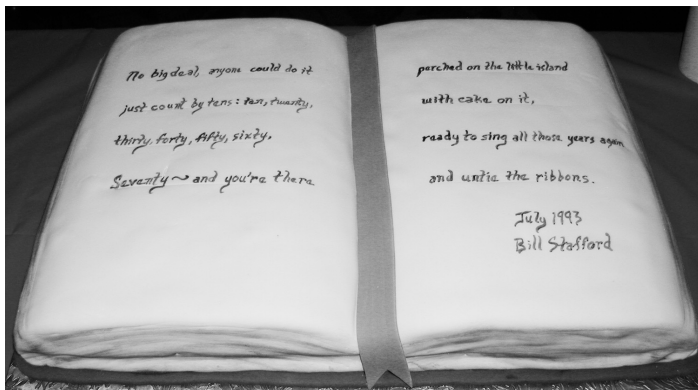 No big deal, anyone could do it
just count by tens: ten, twenty,
thirty, forty, fifty, sixty,
Seventy ~ and you're there
perched on the little island
with cake on it,
ready to sing all those years again
and untie the ribbons.
July 1993
Bill Stafford